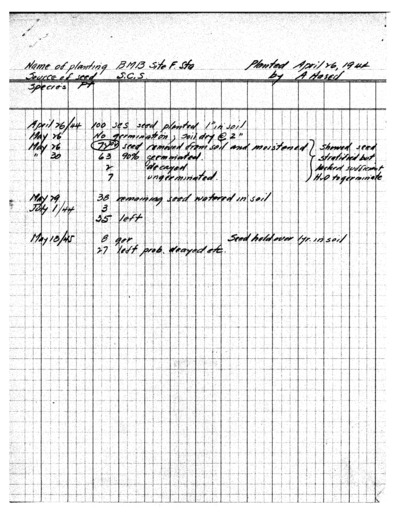 Name of planting BMB Sta F. Sta Planted April 26, 1944
Source of seed S.C.S. by A Hasel
Species PP
April 26/44 100 SCS seed planted 1" in soil
May 26 No germination; soil dry @ 2"
May 26 seed removed from soil and moistened } Showed seed
" 30 63 90% germinated. stratified but
2 decayed lacked sufficient
7 ungerminated. H2O to germinate
May 29 38 remaining seed watered in soil
July 1/44 3
35 left
May 18/45 8 ger Seed held over 1yr. in soil
27 left prob. decayed etc.